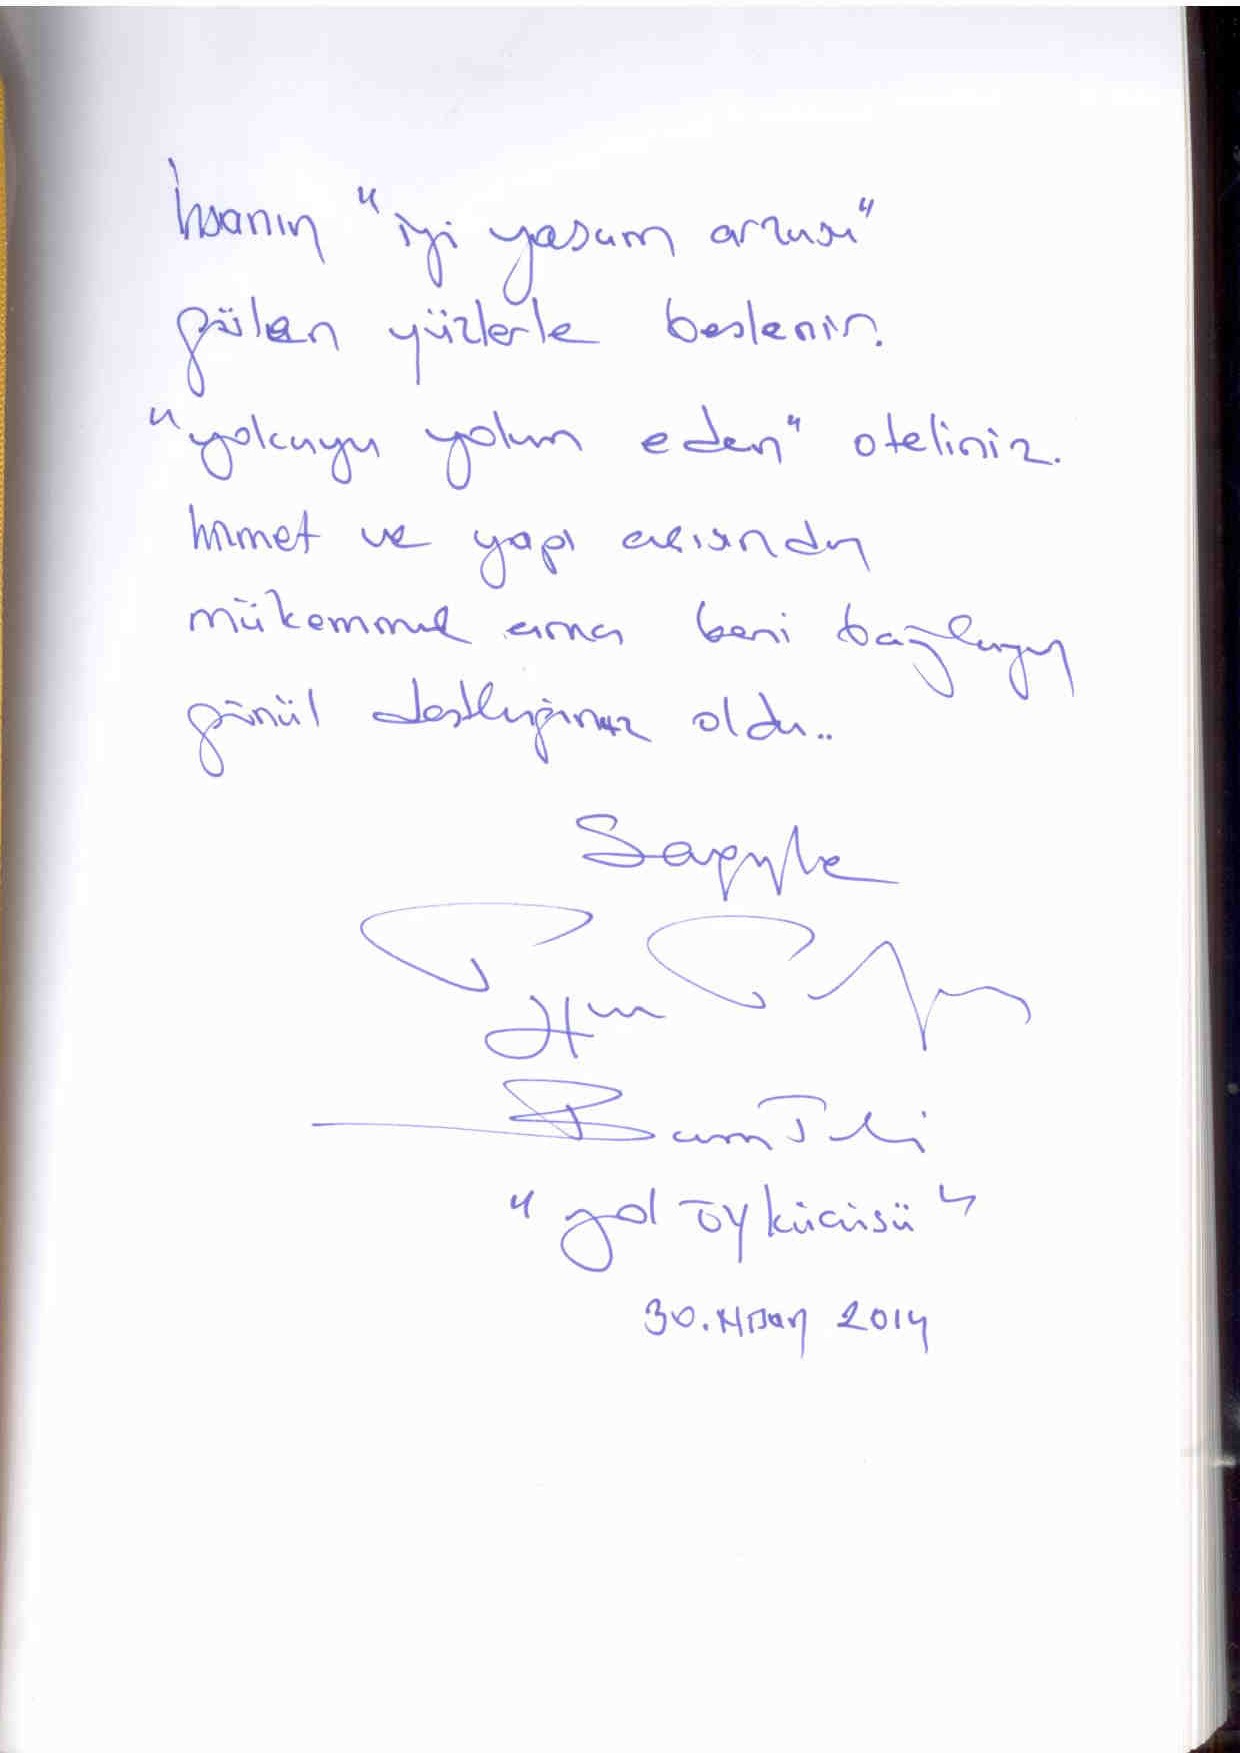 İnsanın "iyi yaşam arzusu"
gülen yüzlerle beslenir.
"yolcuyu yolun eden" oteliniz.
hizmet ve yapı açısından
mükemmel ama beni bağlayan
gönül dostluğunuz oldu..
Saygıyla
"yol öykücüsü"
30.Nisan 2014